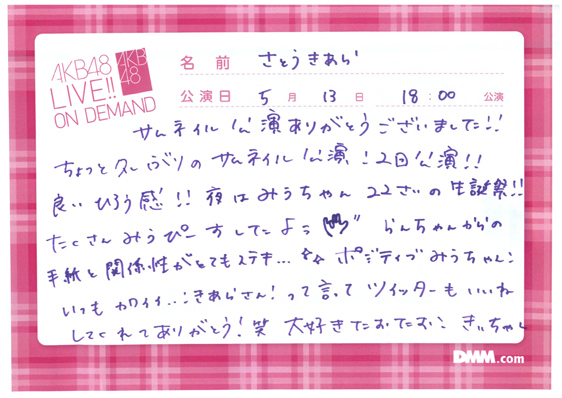 AKB48
LIVE!!
ON DEMAND
AKB
48
名前 さとうきあら
公演日 5月 13日 18:00 公演
サムネイル公演ありがとうございました!!
ちょっと久しぶりのサムネイル公演!2回公演!!
良いひろう感!!夜はみうちゃん22さいの生誕祭!!
たくさんみうぴーすしてたよ らんちゃんからの
手紙と関係性がとてもステキ... ポジティブみうちゃん
いつもカワイイ...きあらさん!って言って ツイッターもいいね
してくれてありがとう!笑 大好き きぃちゃん
DMM.com